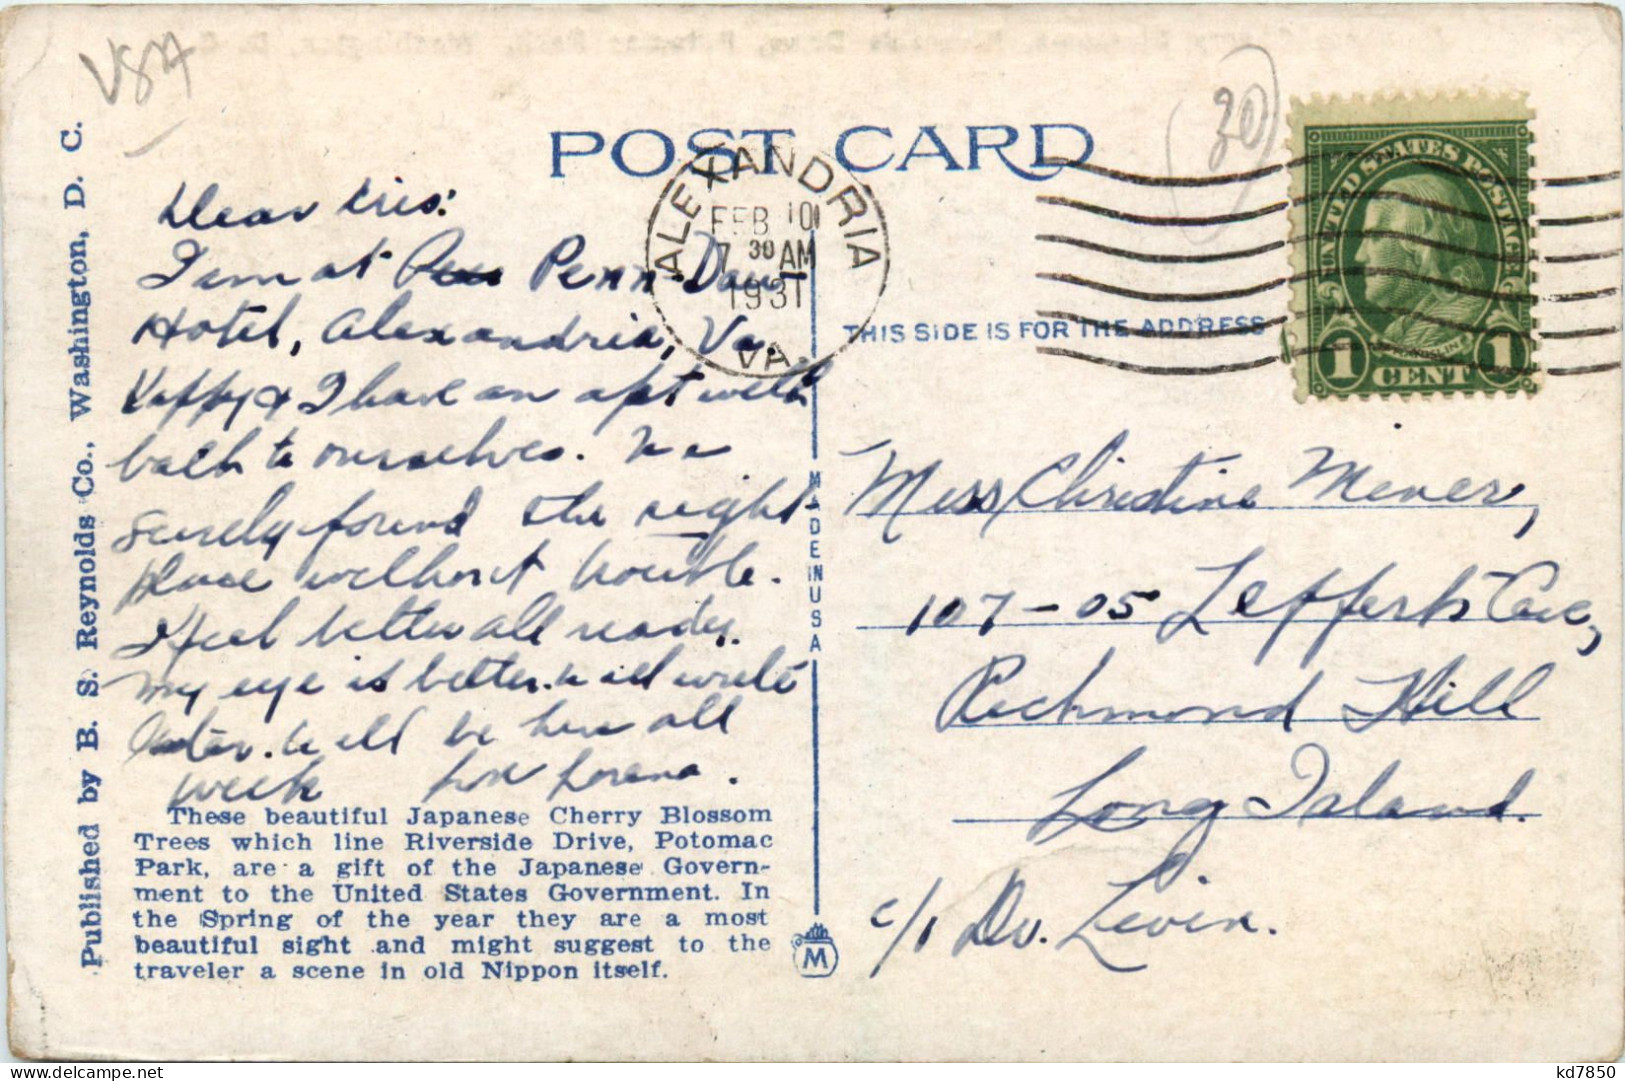 USA
30
POST CARD
ALEXANDRIA
FEB 10
7 30 AM
1931
VA.
UNITED STATES POSTAGE
1 CENT 1
THIS SIDE IS FOR THE ADDRESS
Published by B. S. Reynolds Co., Washington, D. C.
Dear Cris:
I am at Penn-Daw
Hotel, Alexandria, Va.
& I have an apt with
bath to ourselves. We
surely found the right
place without trouble.
I feel better all ready.
My eye is better. Will write
later. Will be here all
week Lorena.
These beautiful Japanese Cherry Blossom
Trees which line Riverside Drive, Potomac
Park, are a gift of the Japanese Govern-
ment to the United States Government. In
the Spring of the year they are a most
beautiful sight and might suggest to the
traveler a scene in old Nippon itself.
MADE IN USA
M
Miss Christine Meners,
107-05 Lefferts Ave,
Richmond Hill
Long Island.
c/o Dr. Levin.
kd7850